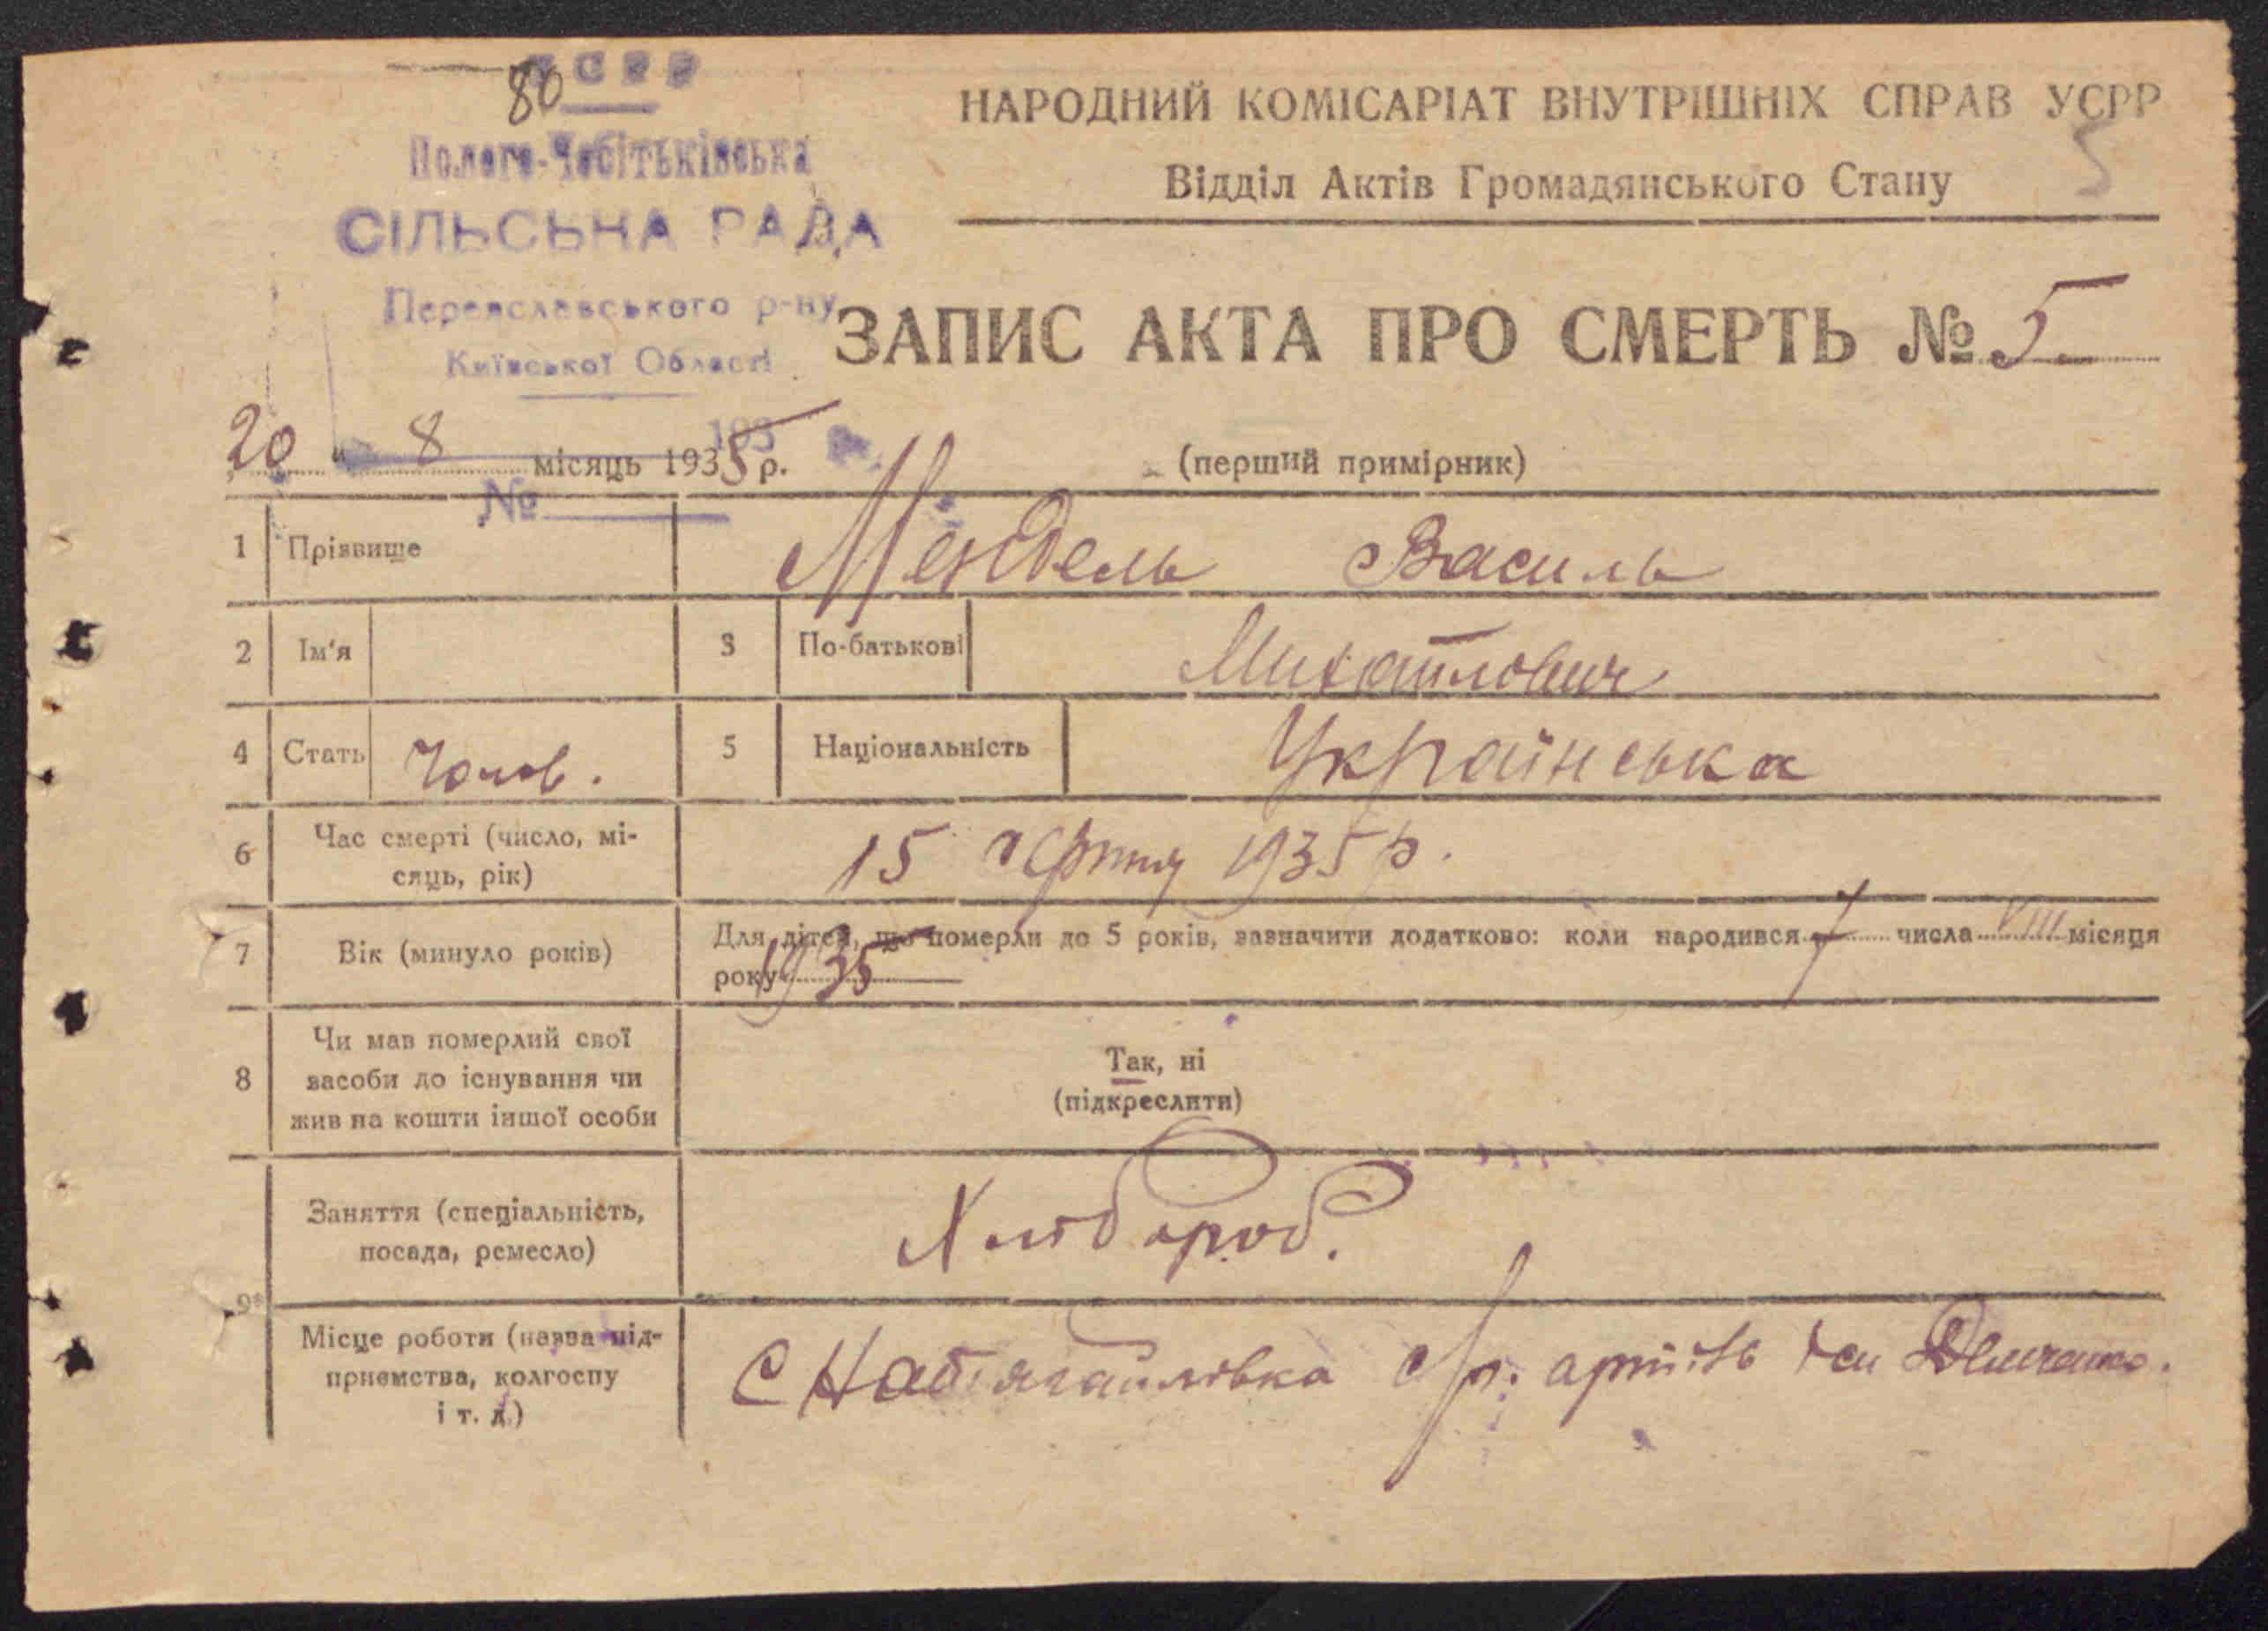 УСРР
80
НАРОДНИЙ КОМІСАРІАТ ВНУТРІШНІХ СПРАВ УСРР
5
Відділ Актів Громадянського Стану
СІЛЬСЬКА РАДА
Переяславського р-ну
Київської Області
ЗАПИС АКТА ПРО СМЕРТЬ № 5
193
20 " 8 місяць 1935 р.
(перший примірник)
№
1 Прізвище Мендель Василь
2 Ім'я 3 По-батькові Михайлович
4 Стать Чолов. 5 Національність Українська
6 Час смерті (число, мі-
сяць, рік) 15 серпня 1935 р.
7 Вік (минуло років) Для дітей, що померли до 5 років, зазначити додатково: коли народився 7 числа VIII місяця
року 1935
8 Чи мав померлий свої
засоби до існування чи
жив на кошти іншої особи
Так, ні
(підкреслити)
9
Заняття (спеціальність,
посада, ремесло) Хлібороб.
Місце роботи (назва під-
приємства, колгоспу
і т. д.) С артіль